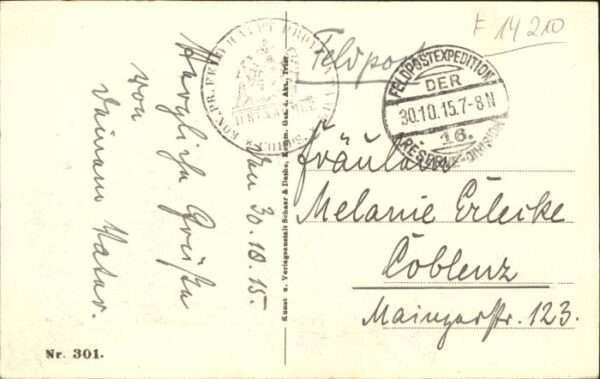 Herzliche Grüße
von
Deinem Vater.
Den 30.10.15.
Nr. 301.
Kunst u. Verlagsanstalt Schaar & Dathe, Komm. Ges. a. Akt., Trier.
F 14210
Feldpost
FELDPOSTEXPEDITION
DER
30.10.15.7-8N
16.
RESERVE-DIVISION
Fräulein
Melanie Erlecke
Coblenz
Mainzerstr. 123.